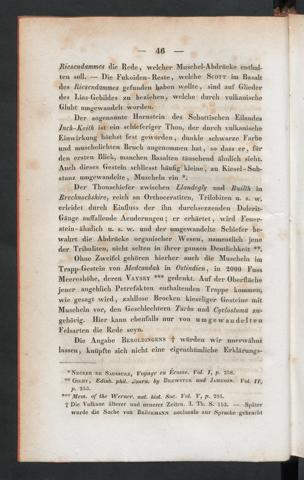 — 46 —
Riesendammes die Rede, welcher Muschel-Abdrücke enthal-
ten soll. — Die Fukoiden-Reste, welche Scott im Basalt
des Riesendammes gefunden haben wollte, sind auf Glieder
des Lias-Gebildes zu beziehen, welche durch vulkanische
Gluht umgewandelt worden.
Der sogenannte Hornstein des Schottischen Eilandes
Inch-Keith ist ein schieferiger Thon, der durch vulkanische
Einwirkung höchst fest geworden, dunkle schwarze Farbe
und muschelichten Bruch angenommen hat, so dass er, für
den ersten Blick, manchen Basalten täuschend ähnlich sieht.
Auch dieses Gestein schliesst häufig kleine, zu Kiesel-Sub-
stanz umgewandelte, Muscheln ein *.
Der Thonschiefer zwischen Llandegly und Builth in
Brecknockshire, reich an Orthoceratiten, Trilobiten u. s. w.
erleidet durch Einfluss der ihn durchsetzenden Dolerit-
Gänge auffallende Aenderungen; er erhärtet, wird Feuer-
stein-ähnlich u. s. w. und der umgewandelte Schiefer be-
wahrt die Abdrücke organischer Wesen, namentlich jene
der Triboliten, nicht selten in ihrer ganzen Deutlichkeit **.
Ohne Zweifel gehören hierher auch die Muscheln im
Trapp-Gestein von Medcondah in Ostindien, in 2000 Fuss
Meereshöhe, deren Vaysey *** gedenkt. Auf der Oberfläche
jener angeblich Petrefakten enthaltenden Trappe kommen,
wie gesagt wird, zahllose Brocken kieseliger Gesteine mit
Muscheln vor, den Geschlechtern Turbo und Cyclostoma zu-
gehörig. Hier kann ebenfalls nur von umgewandelten
Felsarten die Rede seyn.
Die Angabe Beroldingens † würden wir unerwähnt
lassen, knüpfte sich nicht eine eigenthümliche Erklärungs-
* Necker de Saussure, Voyage en Écosse. Vol. I, p. 258.
** Gilby, Edinb. phil. Journ. by Brewster und Jameson. Vol. II,
p. 253.
*** Mem. of the Werner. nat. hist. Soc. Vol. V, p. 295.
† Die Vulkane älterer und neuerer Zeiten. I. Th. S. 153. — Später
wurde die Sache von Brückmann nochmals zur Sprache gebracht